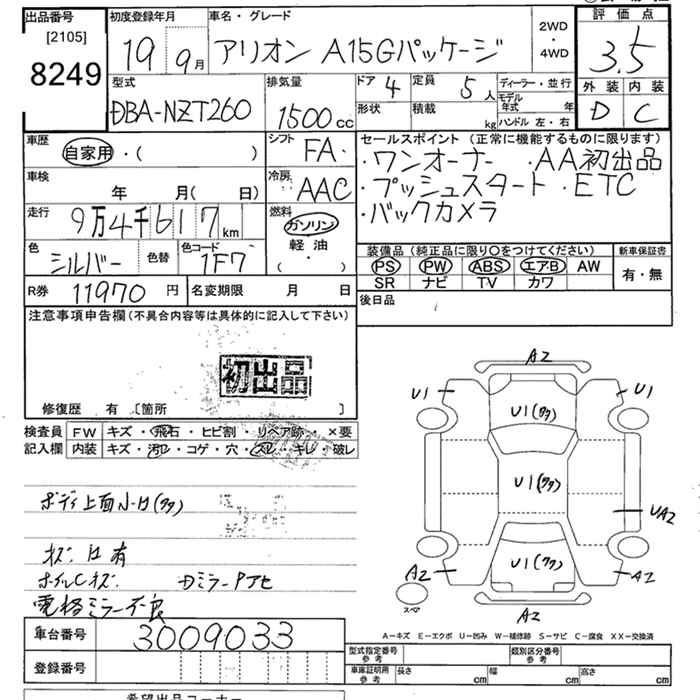 出品番号 初度登録年月 車名・グレード 2WD ・ 4WD 評価点
[2105]
8249 19 9月 アリオン A15Gパッケージ 3.5
型式 排気量 ドア 4 定員 5人 ディーラー・並行 外装 内装
DBA-NZT260 1500cc 形状 積載 kg モデル年式 年 D C
ハンドル 左・右
車歴 自家用・( ) シフト FA セールスポイント (正常に機能するものに限ります)
・ワンオーナー ・AA初出品
車検 年 月( 日) 冷房 AAC ・プッシュスタート ・ETC
走行 9万4千617km 燃料 ガソリン ・バックカメラ
軽油
( ・ )
色 シルバー 色替 色コード 1F7 装備品 (純正品に限り○をつけてください) 新車保証書
PS PW ABS エアB AW 有・無
SR ナビ TV カワ
R券 11970円 名変期限 月 日 後日品
注意事項申告欄 (不具合内容等は具体的に記入して下さい)
初出品
修復歴 有 [箇所 ]
検査員 FW キズ・飛石・ヒビ割・リペア跡・×要
記入欄 内装 キズ・汚レ・コゲ・穴・スレ・キレ・破レ
A2
U1 U1
U1(タタ)
U1(タタ)
UA2
U1(タタ)
A2 A2
スペア
A2
ボディ上面小凹(タタ)
キズ凹有
ホイルCキズ
電格ミラー不良
A-キズ E-エクボ U-凹み W-補修跡 S-サビ C-腐食 XX-交換済
車台番号 3009033
型式指定番号 参考 類別区分番号 参考
登録番号 車庫証明用 参考 長さ cm 幅 cm 高さ cm
希望出品コーナー